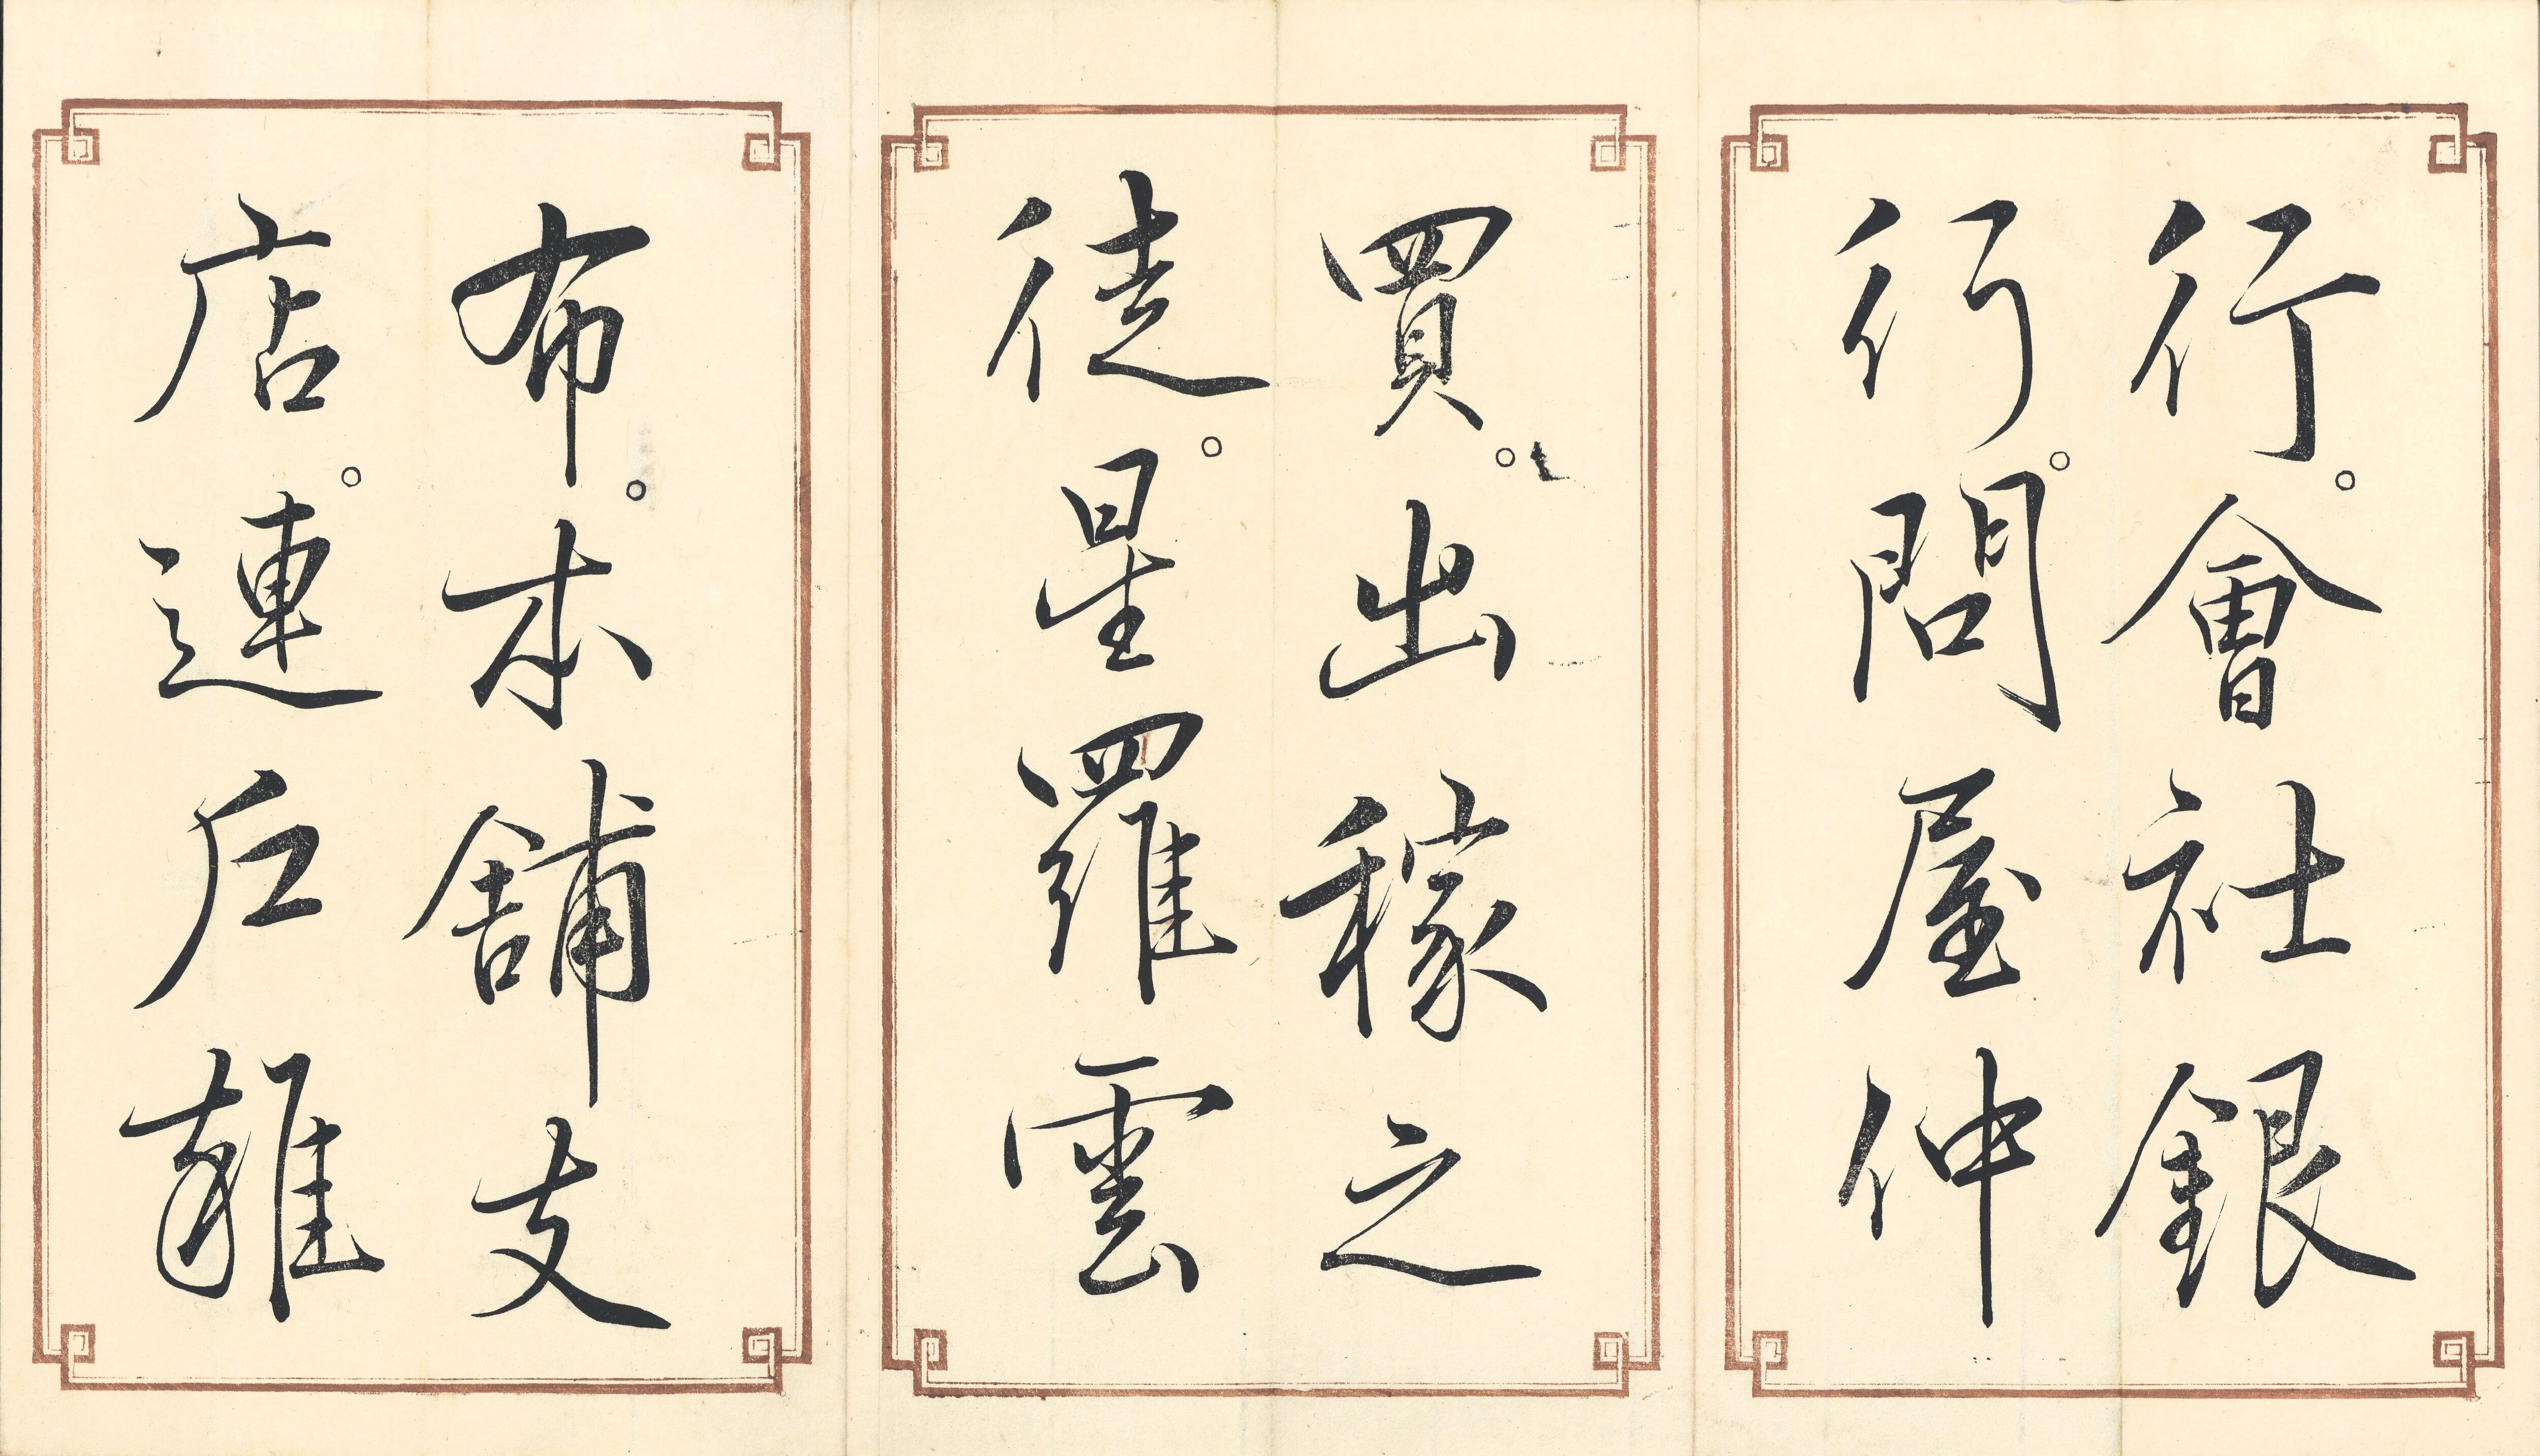 行。會社銀
行。問屋仲
買。出稼之
徒。星羅雲
布。本舖支
店。連戶離